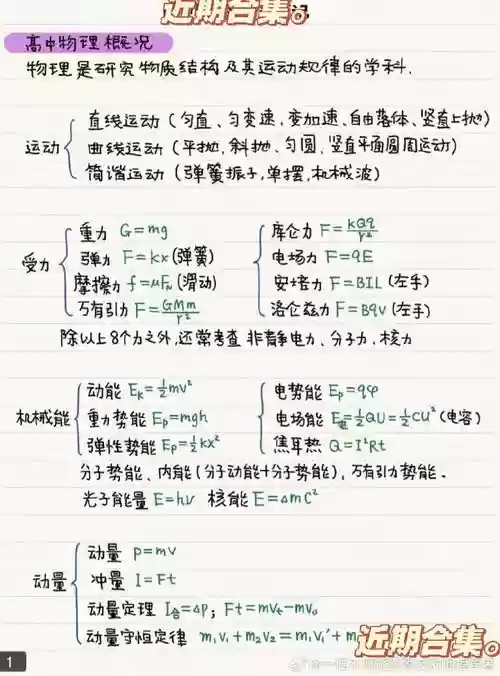 近期合集。
高中物理概况
物理是研究物质结构及其运动规律的学科.
运动
直线运动（匀直、匀变速,变加速、自由落体、竖直上抛）
曲线运动（平抛,斜抛、匀圆,竖直平面圆周运动）
简谐运动（弹簧振子,单摆,机械波）
受力
重力 G=mg
弹力 F=kx(弹簧)
摩擦力 f=μFₙ(滑动)
万有引力 F=GMm/r²
库仑力 F=kQq/r²
电场力 F=qE
安培力 F=BIL(左手)
洛仑兹力 F=Bqv(左手)
除以上8个力之外,还常考查 非静电力、分子力、核力
机械能
动能 Eₖ=½mv²
重力势能 Eₚ=mgh
弹性势能 Eₚ=½kx²
电势能 Eₚ=qφ
电场能 E电=½QU=½CU²(电容)
焦耳热 Q=I²Rt
分子势能、内能(分子动能+分子势能),万有引力势能.
光子能量 E=hν 核能 E=△mC²
动量
动量 p=mv
冲量 I=Ft
动量定理 I合=△p; Ft=mvₜ-mv₀
动量守恒定律 m₁v₁+m₂v₂=m₁v₁'+m
近期合集。
1